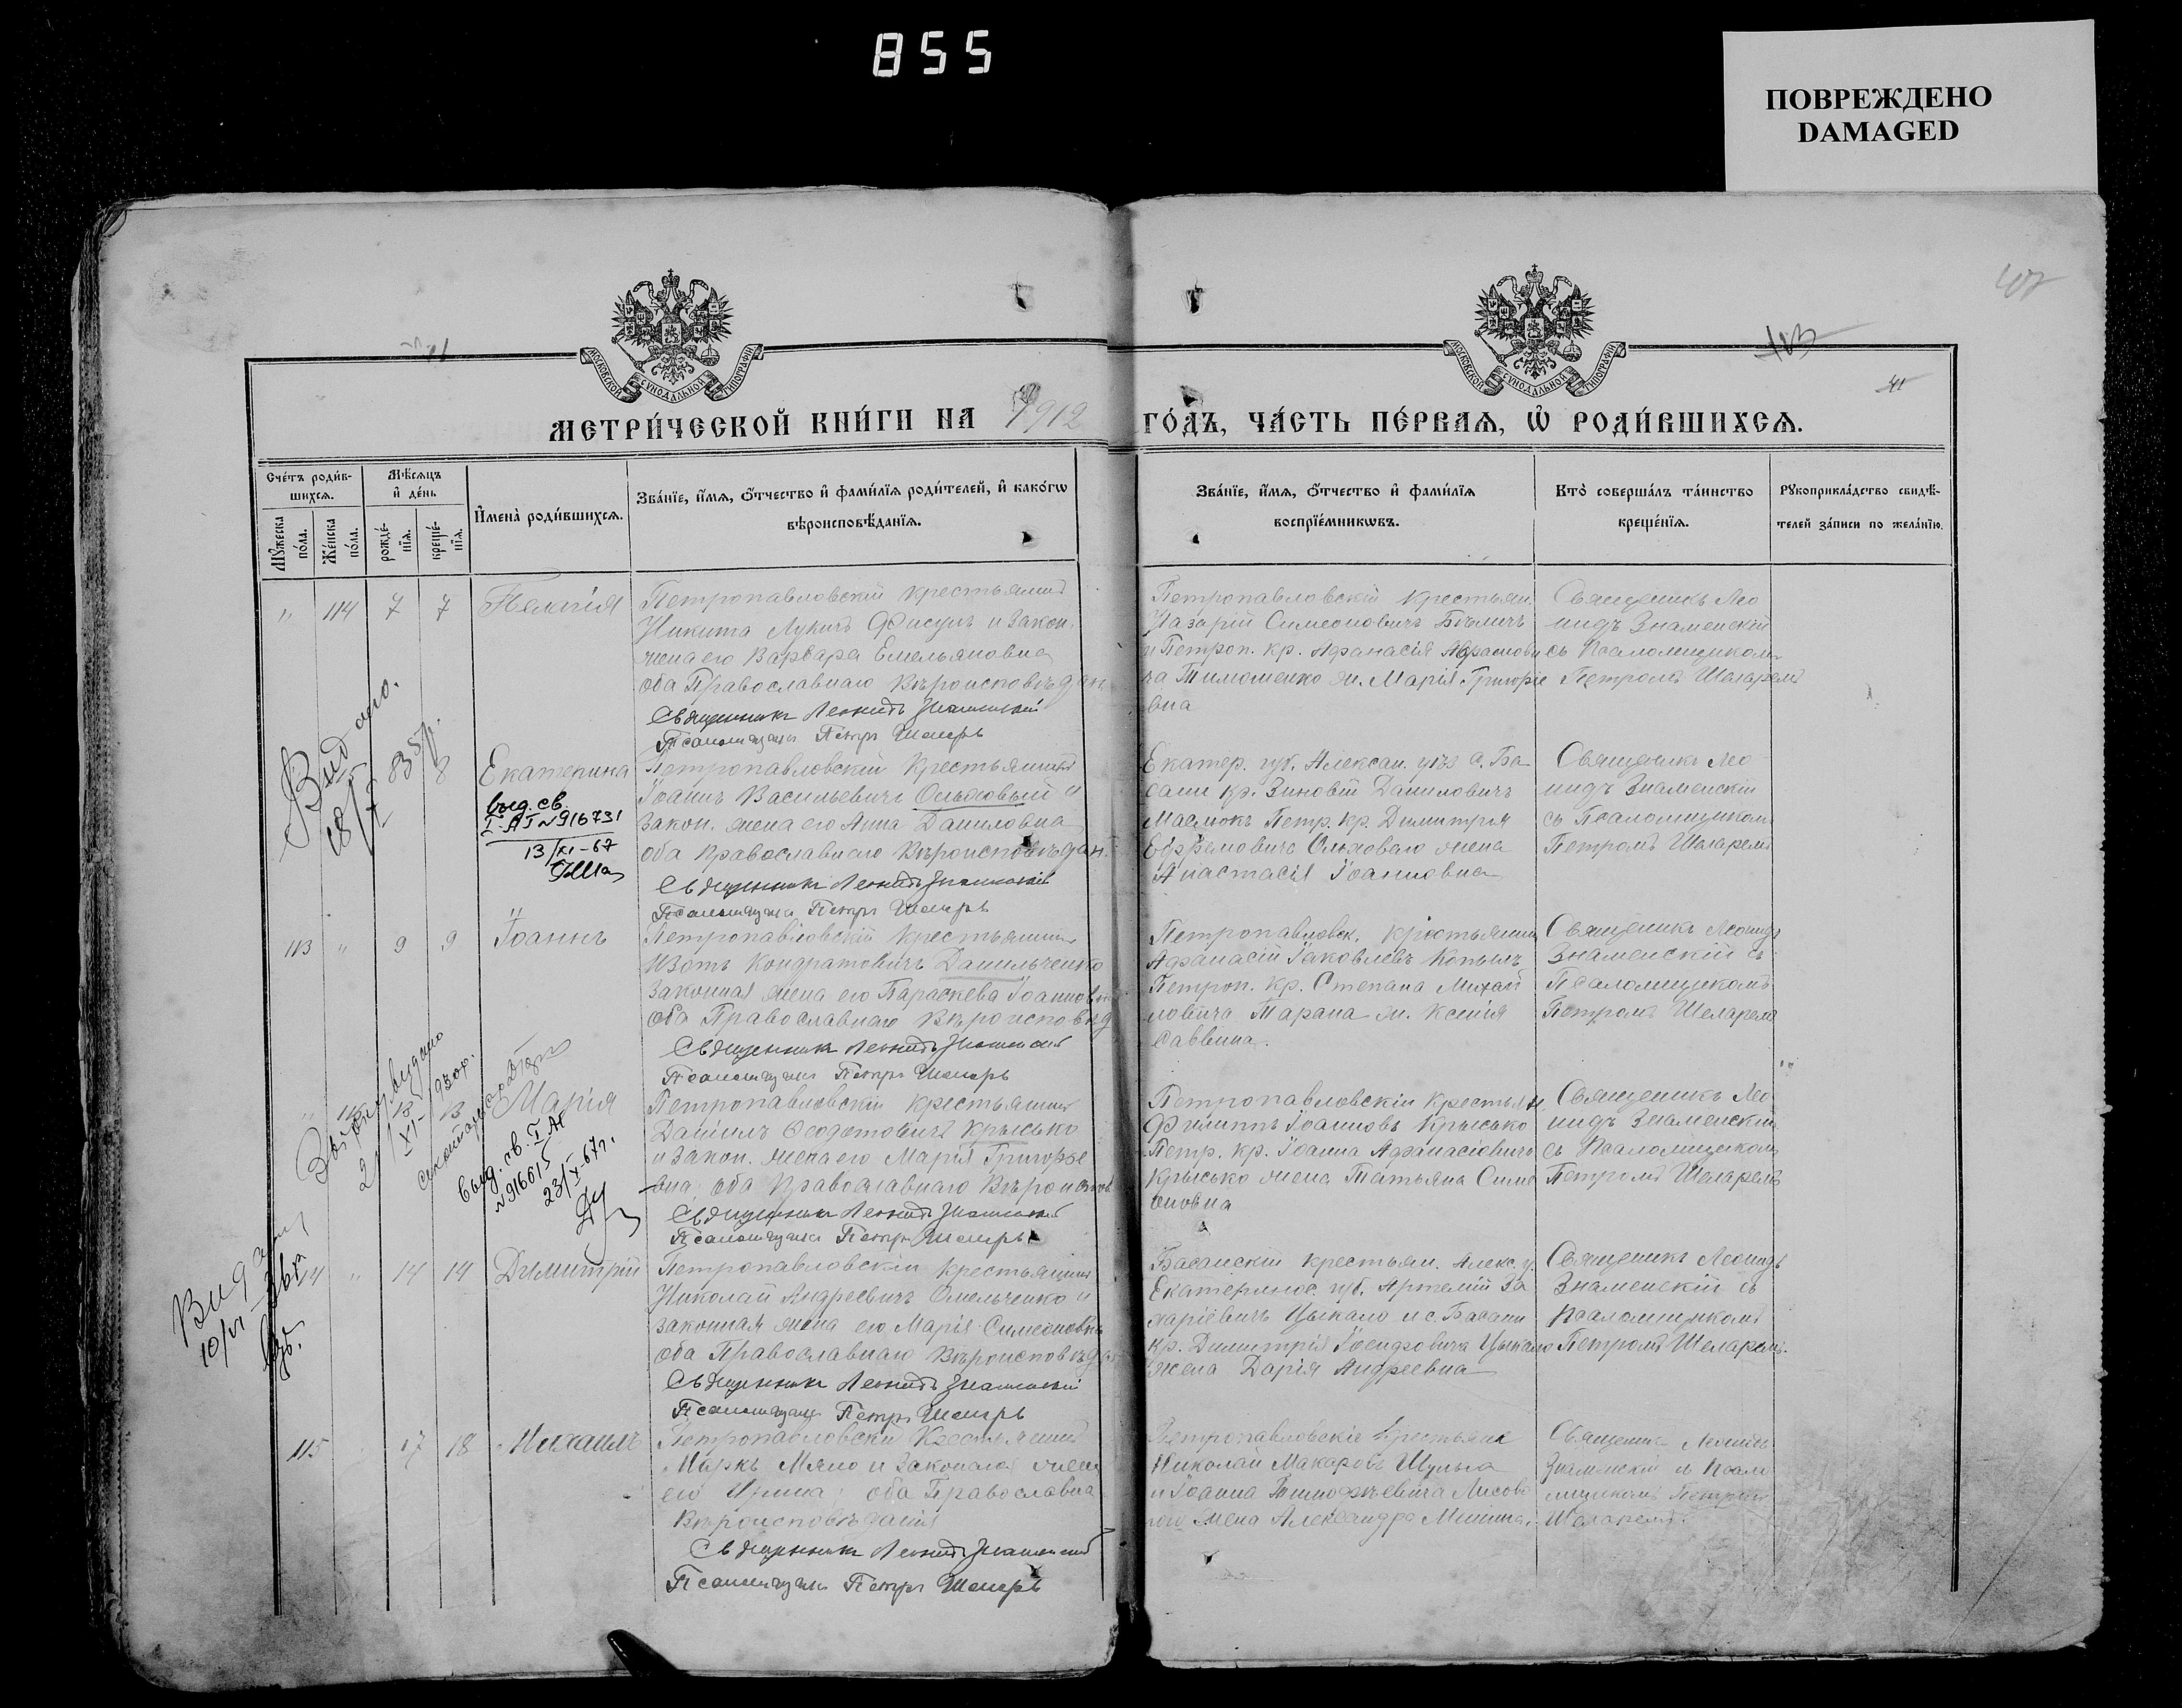 855
ПОВРЕЖДЕНО
DAMAGED
407
103
41
МОСКОВСКОЙ СУНОДАЛЬНОЙ ТИПОГРАФІИ
МОСКОВСКОЙ СУНОДАЛЬНОЙ ТИПОГРАФІИ
МЕТРИ́ЧЕСКОЙ КНИ́ГИ НА 1912 ГО́ДЪ, ЧА́СТЬ ПЕ́РВАѦ, Ѡ РОДИ́ВШИХСѦ.
Сче́тъ роди́в-
шихсѧ.
Мꙋ́жеска по́ла.
Же́нска по́ла.
Мѣ́сѧцъ
и҆ де́нь
рожде́-
нїѧ.
креще́-
нїѧ.
И҆мена̀ роди́вшихсѧ.
Зва́нїе, и҆́мѧ, ѻ҆́тчество и҆ фами́лїѧ роди́телей, и҆ како́гѡ
вѣроисповѣ́данїѧ.
Зва́нїе, и҆́мѧ, ѻ҆́тчество и҆ фами́лїѧ
воспрїе́мникѡвъ.
Кто̀ соверша́лъ та́инство
креще́нїѧ.
Рꙋкоприкла́дство свидѣ́-
телей за́писи по жела́нїю.
" 114 7 7 Пелагія
Петропавловскій крестьянинъ
Никита Лукичъ Фисунъ и закон.
жена его Варвара Емельяновна
оба Православнаго Вѣроисповѣдан.
Священникъ Леонидъ Знаменскій
Псаломщикъ Петръ Шеларь
Петропавловскій крестьян.
Назарій Симеоновичъ Бѣличъ
и Петроп. кр. Афанасія Афанасови
ча Тимошенко ж. Марія Григорье
вна
Священикъ Лео
нидъ Знаменскій
съ Псаломщиком
Петромъ Шеларемъ
Видано.
18/V
8 Екатерина
выд. св.
I-АГ №916731
13/XI-67
Петропавловскій Крестьянинъ
Іоаннъ Васильевичъ Ольховый и
закон. жена его Анна Даниловна
оба Православнаго Вѣроисповѣдан.
Священникъ Леонидъ Знаменскій
Псаломщикъ Петръ Шеларь
Екатер. губ. Алексан. уѣз. с. Ба
сани кр. Зиновій Даниловичъ
Маслюкъ Петр. кр. Димитрія
Ефремовича Ольховаго жена
Анастасія Іоанновна
Священикъ Лео
нидъ Знаменскій
съ Псаломщиком
Петромъ Шеларемъ
113 " 9 9 Іоаннъ
Петропавловскій Крестьянинъ
Изотъ Кондратовичъ Данильченко
Законная жена его Параскева Іоаннов
оба Православнаго Вѣроисповѣд
Священникъ Леонидъ Знаменскій
Псаломщикъ Петръ Шеларь
Петропавловск. крестьянин
Афанасій Іаковлевъ Копылъ
Петроп. кр. Степана Михай
ловича Тарана ж. Ксенія
Саввина.
Священикъ Леонидъ
Знаменскій съ
Псаломщикомъ
Петромъ Шеларемъ
" 13 13 Марія
выд. св. I АГ
№916615
23/X-67г.
Петропавловскій крестьянинъ
Даніилъ Ѳеодотовичъ Крысько
и закон. жена его Марія Григорье
вна, оба Православнаго Вѣроиспов
Священникъ Леонидъ Знаменскій
Псаломщикъ Петръ Шеларь
Петропавловскій Крестьян.
Филиппъ Іоанновъ Крысько
Петр. кр. Іоанна Афанасіевича
Крысько жена Татьяна Симе
оновна
Священикъ Лео
нидъ Знаменскій
съ Псаломщиком
Петромъ Шеларемъ
Видано
10/VI
114 " 14 14 Димитрій
Петропавловскій крестьянинъ
Николай Андреевичъ Омельченко и
законная жена его Марія Симеоновна
оба Православнаго Вѣроисповѣда
Священникъ Леонидъ Знаменскій
Псаломщикъ Петръ Шеларь
Басанскій крестьян. Алекс. у.
Екатеринос. губ. Артемій За
харіевичъ Цыкало и с. Басани
кр. Димитрія Іосифовича Цыкало
жена Дарія Андреевна
Священикъ Леонидъ
Знаменскій съ
Псаломщикомъ
Петромъ Шеларемъ.
115 17 18 Михаилъ
Петропавловскій Крестьянинъ
Маркъ Мяло и законная жена
его Ирина, оба Православна
Вѣроисповѣданія
Священникъ Леонидъ Знаменскій
Псаломщикъ Петръ Шеларь
Петропавловскіе Крестьяне
Николай Макаровъ Шульга
и Іоанна Тимофѣевича Лисова
го жена Александра Минина.
Священикъ Леонидъ
Знаменскій съ Псало
мщикомъ Петромъ
Шеларемъ.